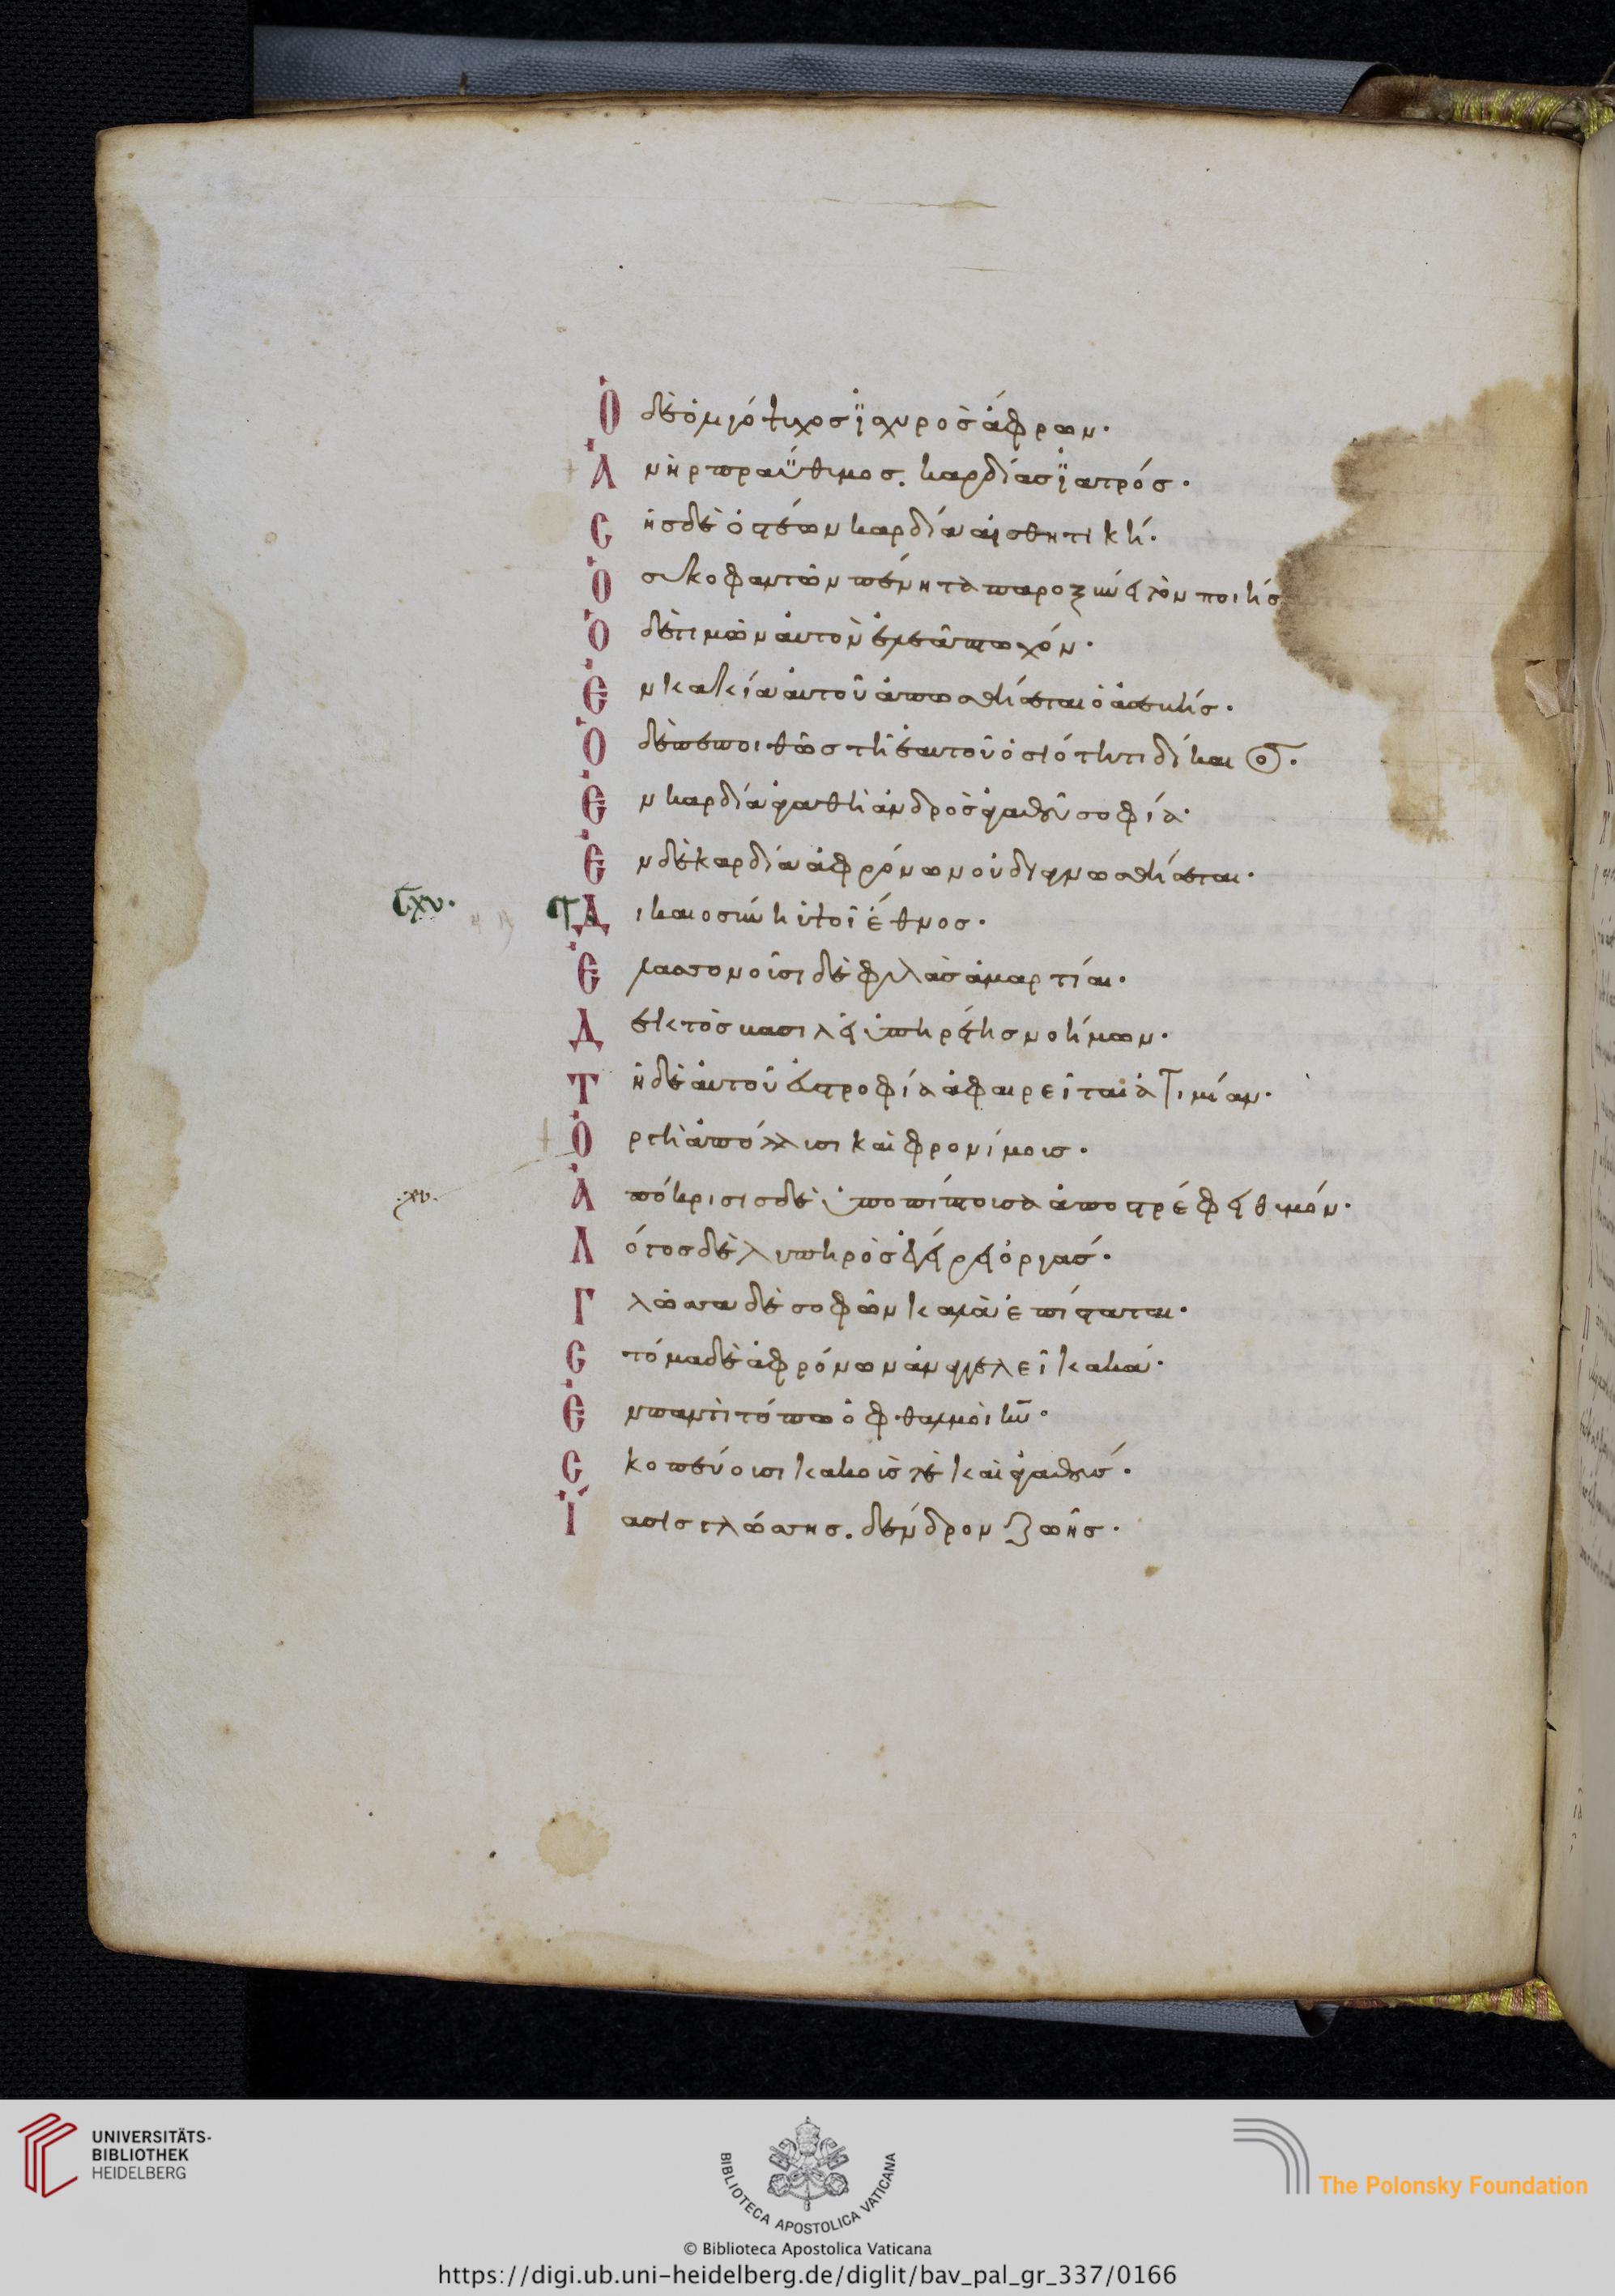 Ὁ δὲ ὀλιγόψυχος ἰσχυρὸς ἄφρων·
Ἀνὴρ πραΰθυμος. καρδίας ἰατρός·
Σὴς δὲ ὀστέων καρδία αἰσθητική·
Ὁ συκοφαντῶν πένητα παροξύνει τὸν ποιήσ
Ὁ δὲ τιμῶν αὐτὸν ἐλεᾶ πτωχόν·
Ἐν κακία αὐτοῦ ἀπωσθήσεται ὁ ἀσεβής·
Ὁ δὲ πεποιθὼς τῆ ἑαυτοῦ ὁσιότητι δίκαιος·
Ἐν καρδία ἀγαθῆ ἀνδρὸς ἀγαθοῦ σοφία·
Ἐν δὲ καρδία ἀφρόνων οὐ διαγνωσθήσεται·
Δικαιοσύνη ὑψοῖ ἔθνος·
Ἐλασσονοῦσι δὲ φυλὰς ἁμαρτίαι·
Δεκτὸς βασιλεῖ ὑπηρέτης νοήμων·
Τῆ δὲ αὐτοῦ εὐστροφία ἀφαιρεῖται ἀτιμίαν·
Ὀργὴ ἀπόλλυσι καὶ φρονίμους·
Ἀπόκρισις δὲ ὑποπίπτουσα ἀποστρέφει θυμόν·
Λόγος δὲ λυπηρὸς ἐγείρει ὀργάς·
Γλῶσσα δὲ σοφῶν καλὰ ἐπίσταται·
Στόμα δὲ ἀφρόνων ἀναγγελεῖ κακά·
Ἐν παντὶ τόπω ὀφθαλμοὶ κυ·
Σκοπεύουσι κακούς τε καὶ ἀγαθούς·
Ἴασις γλώσσης. δένδρον ζωῆς·
UNIVERSITÄTS-
BIBLIOTHEK
HEIDELBERG
BIBLIOTECA APOSTOLICA VATICANA
The Polonsky Foundation
© Biblioteca Apostolica Vaticana
https://digi.ub.uni-heidelberg.de/diglit/bav_pal_gr_337/0166